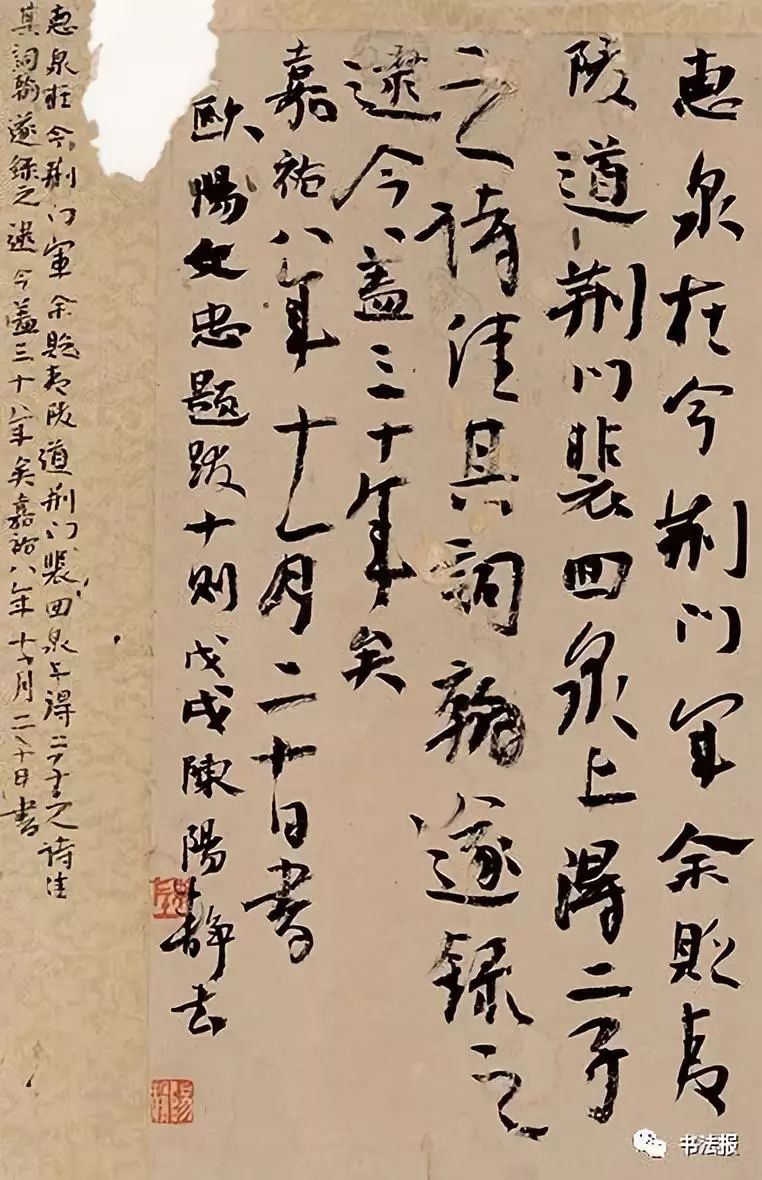 惠泉在今荆門軍余貶夷
陵道荆門裴回泉上得二子
之詩佳其詞翰遂錄之
逮今蓋三十年矣
嘉祐八年十一月二十日書
歐陽文忠題跋十則戊戌陳陽靜
惠泉在今荆門軍余貶夷陵道荆門裴回泉上得二子之詩佳
其詞翰遂錄之逮今蓋三十年矣嘉祐八年十一月二十日書
书法报